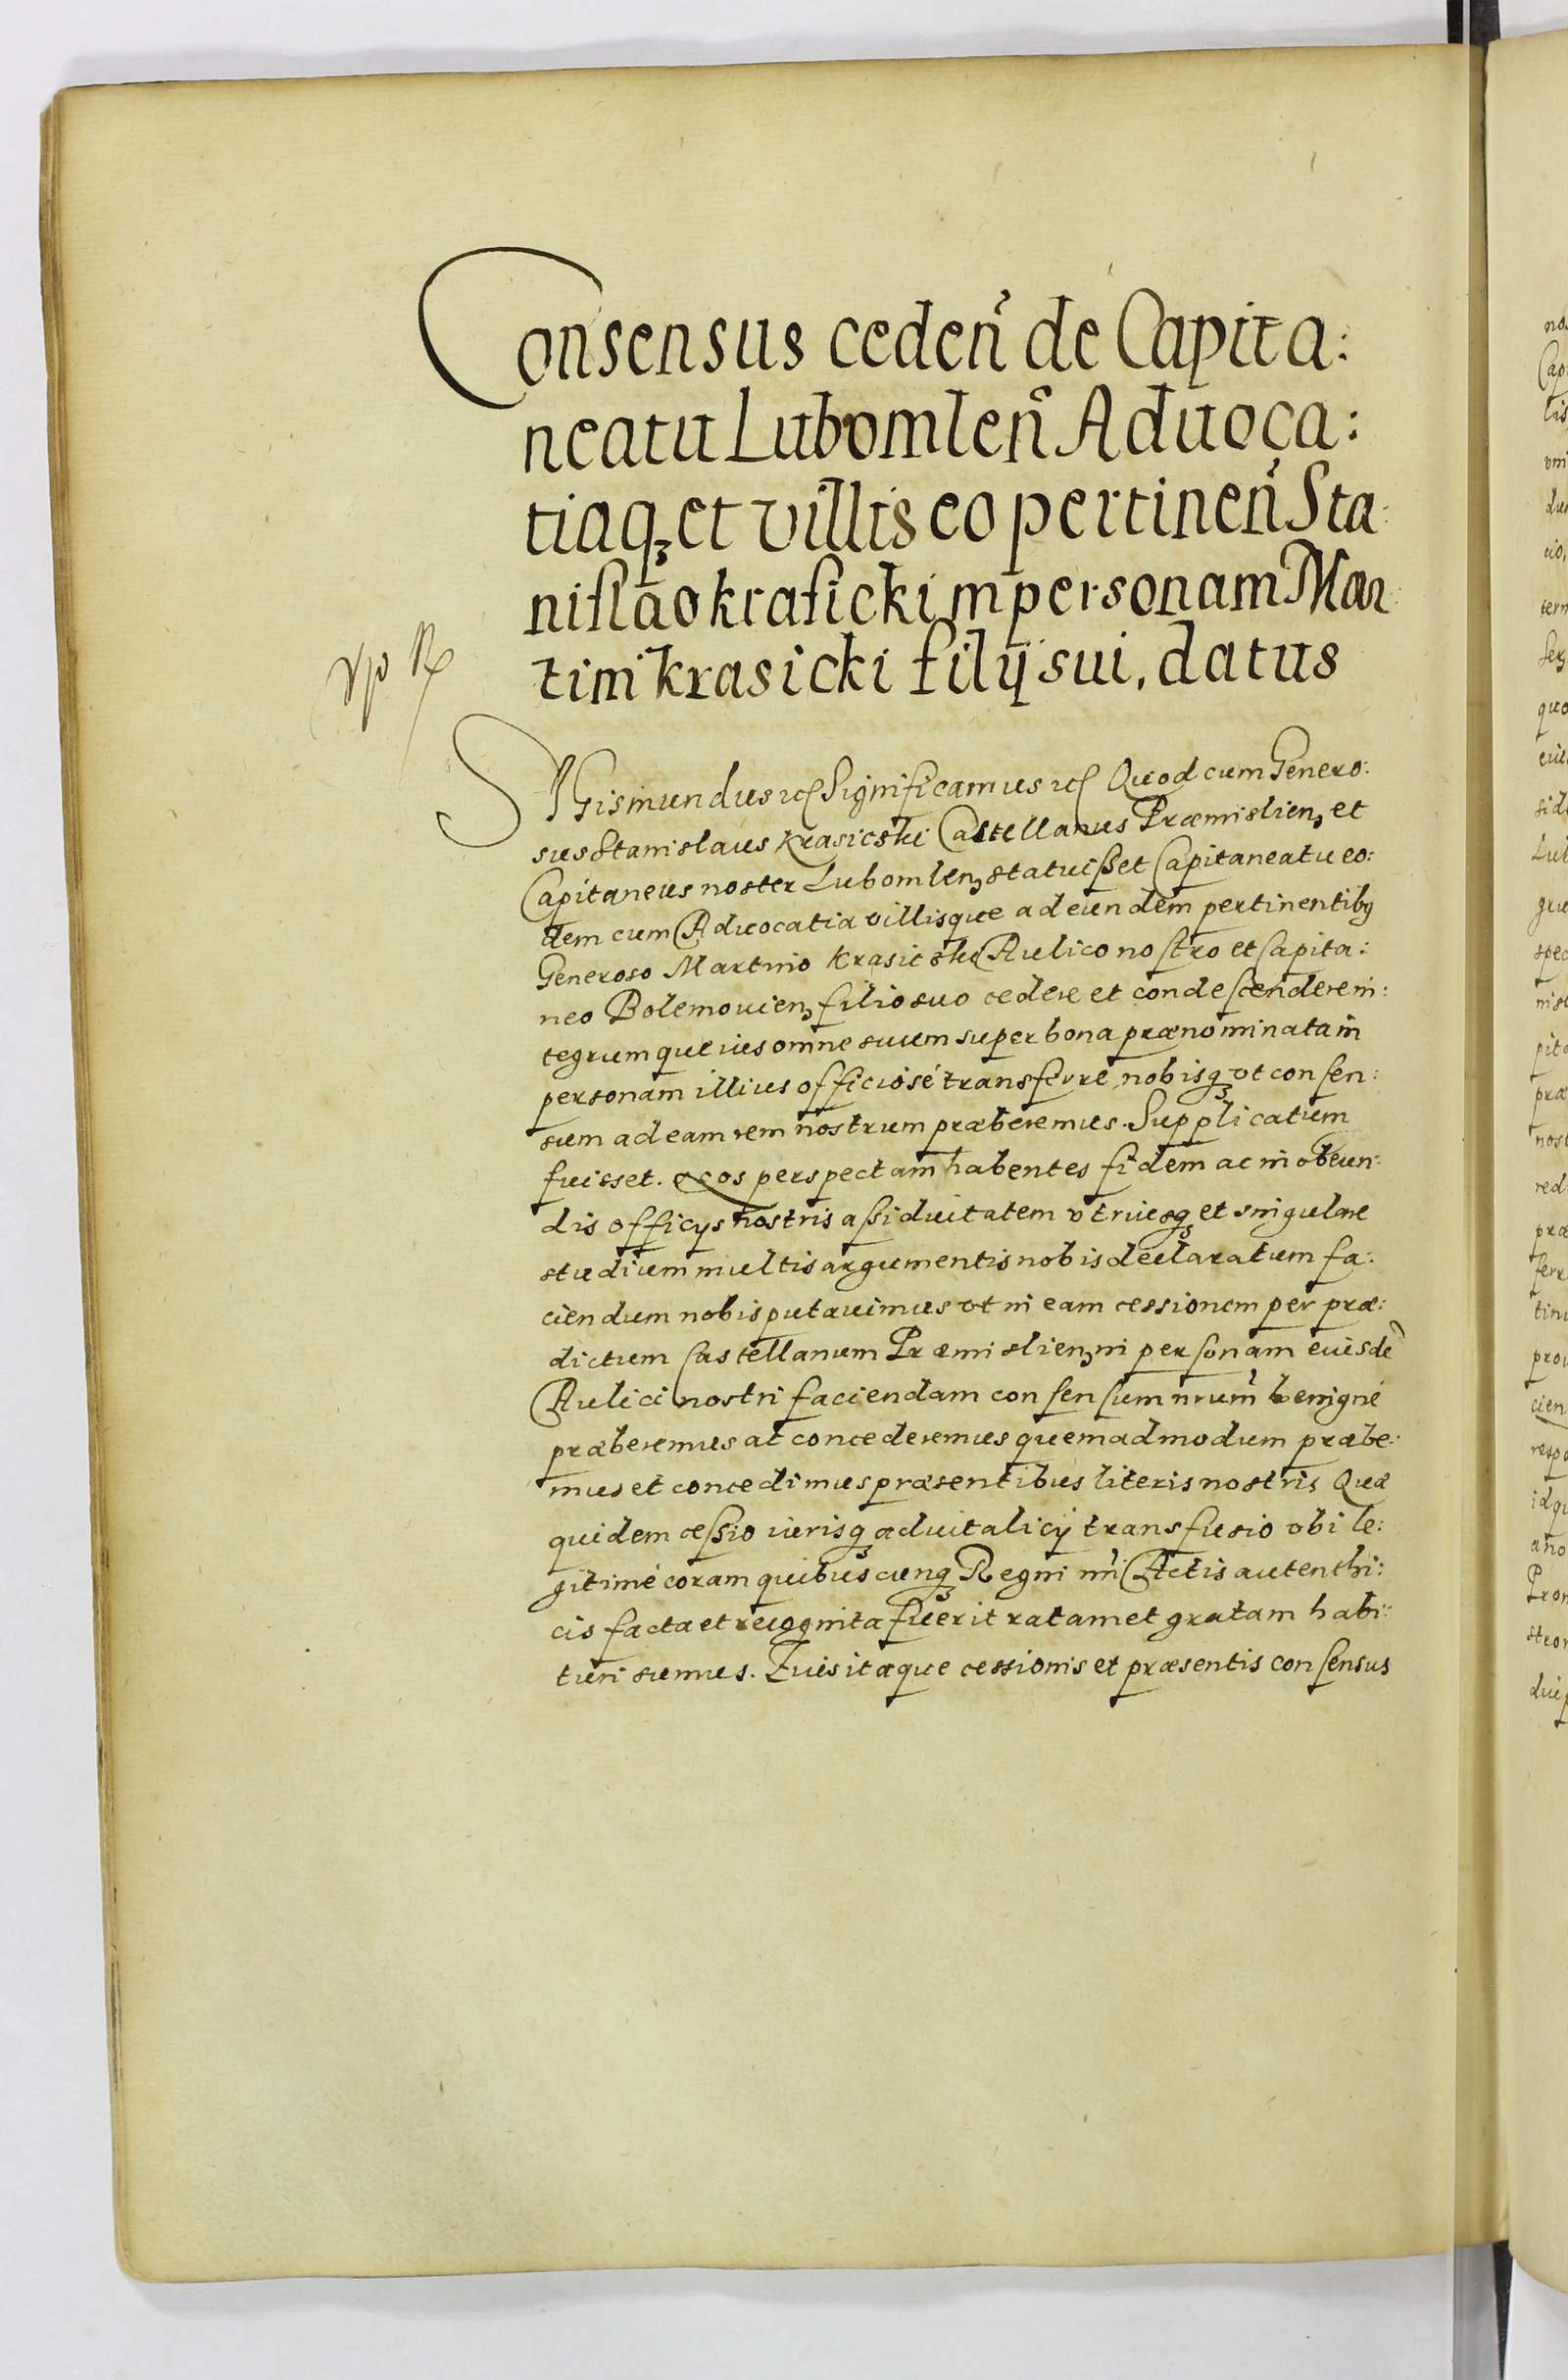 Consensus ceden̄ de Capita:
neatu Lubomlen̄ Aduoca:
tiaqꝫ et villis eo pertinen̄ Sta:
nislāo krasicki in personam Mar:
tini krasicki filij sui, datus
SIGismundus ꝛc̃ Significamus ꝛc̃ Quod cum Genero:
sus Stanislaus Krasicski Castellanus Præmislienꝫ et
Capitaneus noster Lubomlenꝫ statuisset Capitaneatu eo:
dem cum Aduocatia villisque ad eundem pertinentibꝰ
Generoso Martino Krasicski Aulico nostro et Capita:
neo Bolemouienꝫ filio suo cedere et condescendere in:
tegrumque ius omne suum super bona prænominata in
personam illius officiosé transferre, nobisqꝫ vt consen:
sum ad eam rem nostrum præberemus. Supplicatum
fuisset. Nos perspectam habentes fidem ac in obeun:
dis officijs nostris assiduitatem vtriusqꝫ et singulare
studium multis argumentis nobis declaratum fa:
ciendum nobis putauimus vt in eam cessionem per præ:
dictum Castellanum Præmislienꝫ in personam eiusdē
Aulici nostri faciendam consensum nr̄um benigné
præberemus ac concederemus quemadmodum præbe:
mus et concedimus præsentibus literis nostris Quæ
quidem cessio iurisqꝫ aduitalicij transfusio vbi le:
gitimé coram quibuscunqꝫ Regni nr̄i Actis autenthi:
cis facta et recognita fuerit ratam et gratam habi:
turi sumus. Cuius itaque cessionis et præsentis consensus